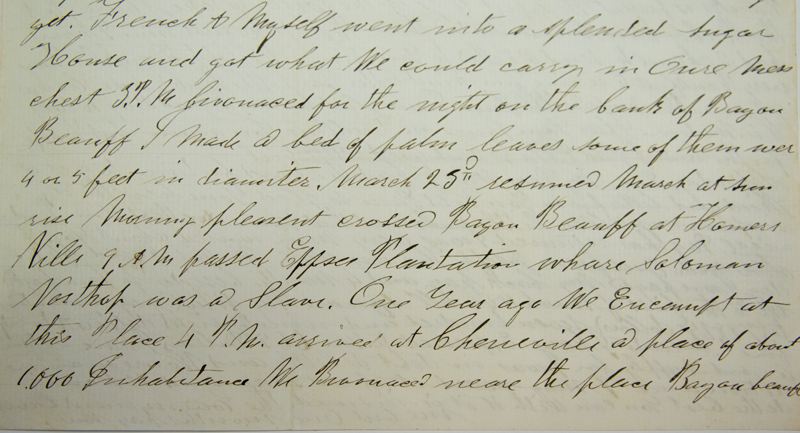 yet. French & Myself went into a splended sugar
House and got what We could carry in Oure Mess
chest 3 P.M. bivouaced for the night on the bank of Bayou
Beauff I made a bed of palm leaves some of them wer
4 or 5 feet in diamiter. March 25th resumed March at sun
rise Morning pleasent crossed Bayou Beauff at Homers
Ville 9 A.M passed Eppses Plantation whare Soloman
Northop was a Slave. One Year ago We Encampt at
this Place 4 P.M. arrived at Cheneville a place of about
1.000 Inhabitance We Bivouaced neare the place Bayou beauff